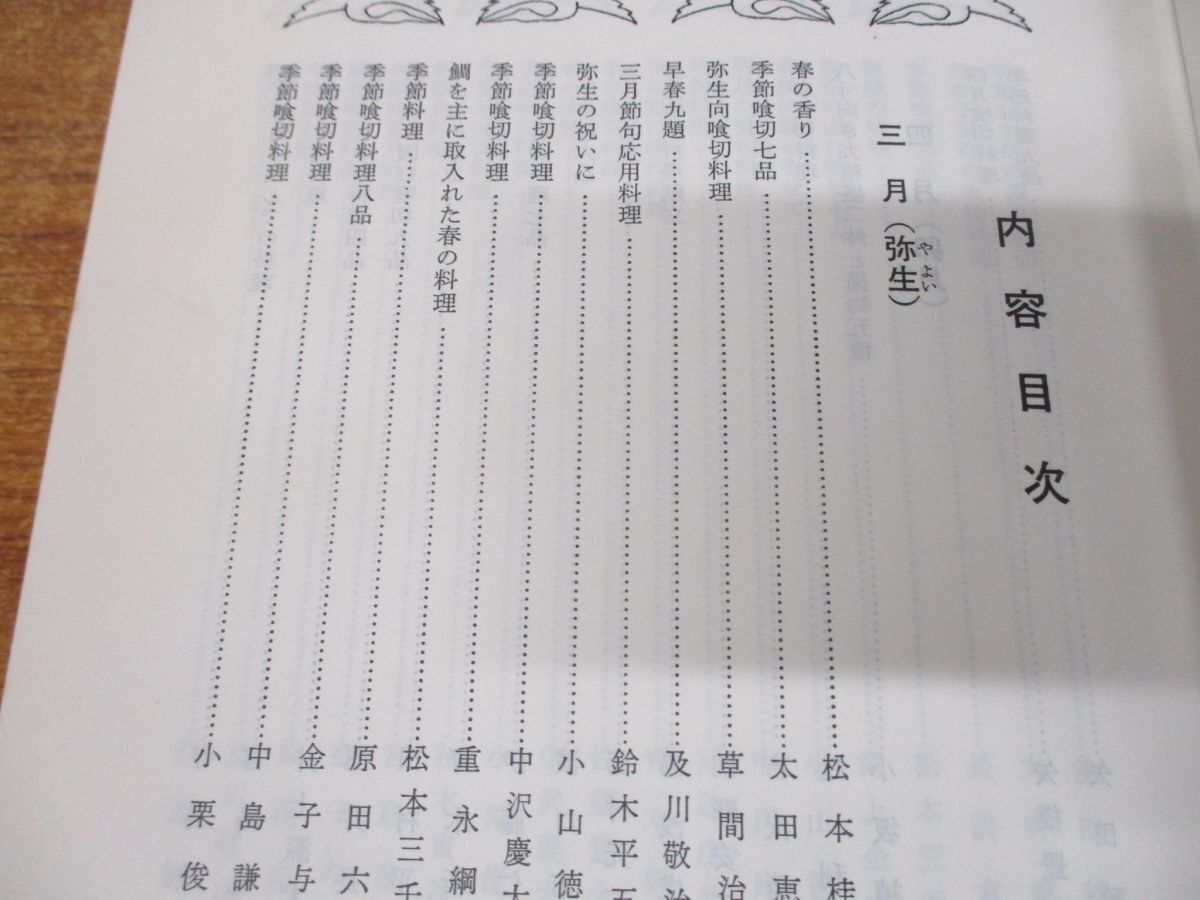 内容目次
三月（弥生）
やよい
春の香り……松本桂
季節喰切七品……太田恵
弥生向喰切料理……草間治
早春九題……及川敬治
三月節句応用料理……鈴木平五
弥生の祝いに……小山徳
季節喰切料理……中沢慶
季節喰切料理……重永綱
鯛を主に取入れた春の料理……松本三千
季節料理……原田六
季節喰切料理八品……金子与
季節喰切料理……中島謙
季節喰切料理……小栗俊